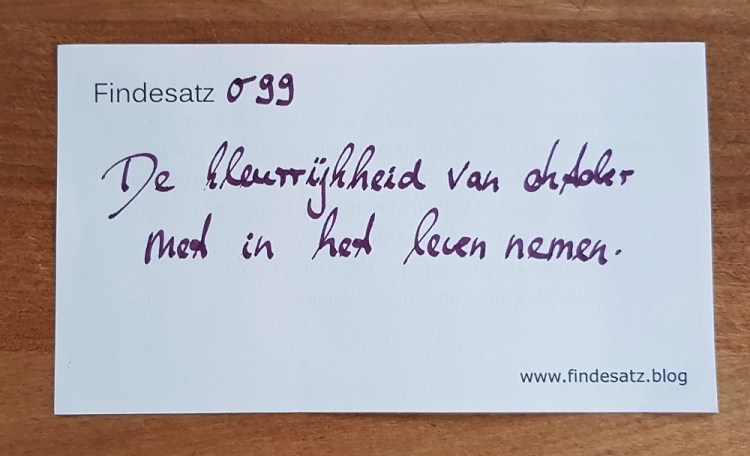 Findesatz 099
De kleurrijkheid van oktober
met in het leven nemen.
www.findesatz.blog